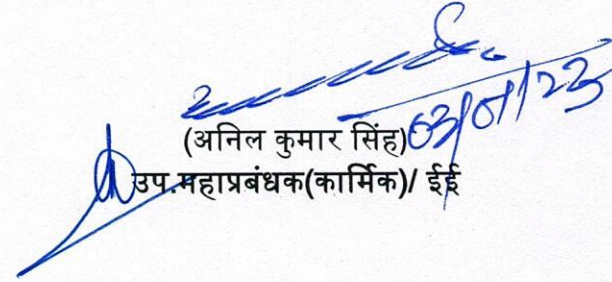 03/01/23
(अनिल कुमार सिंह)
उप.महाप्रबंधक(कार्मिक)/ ईई